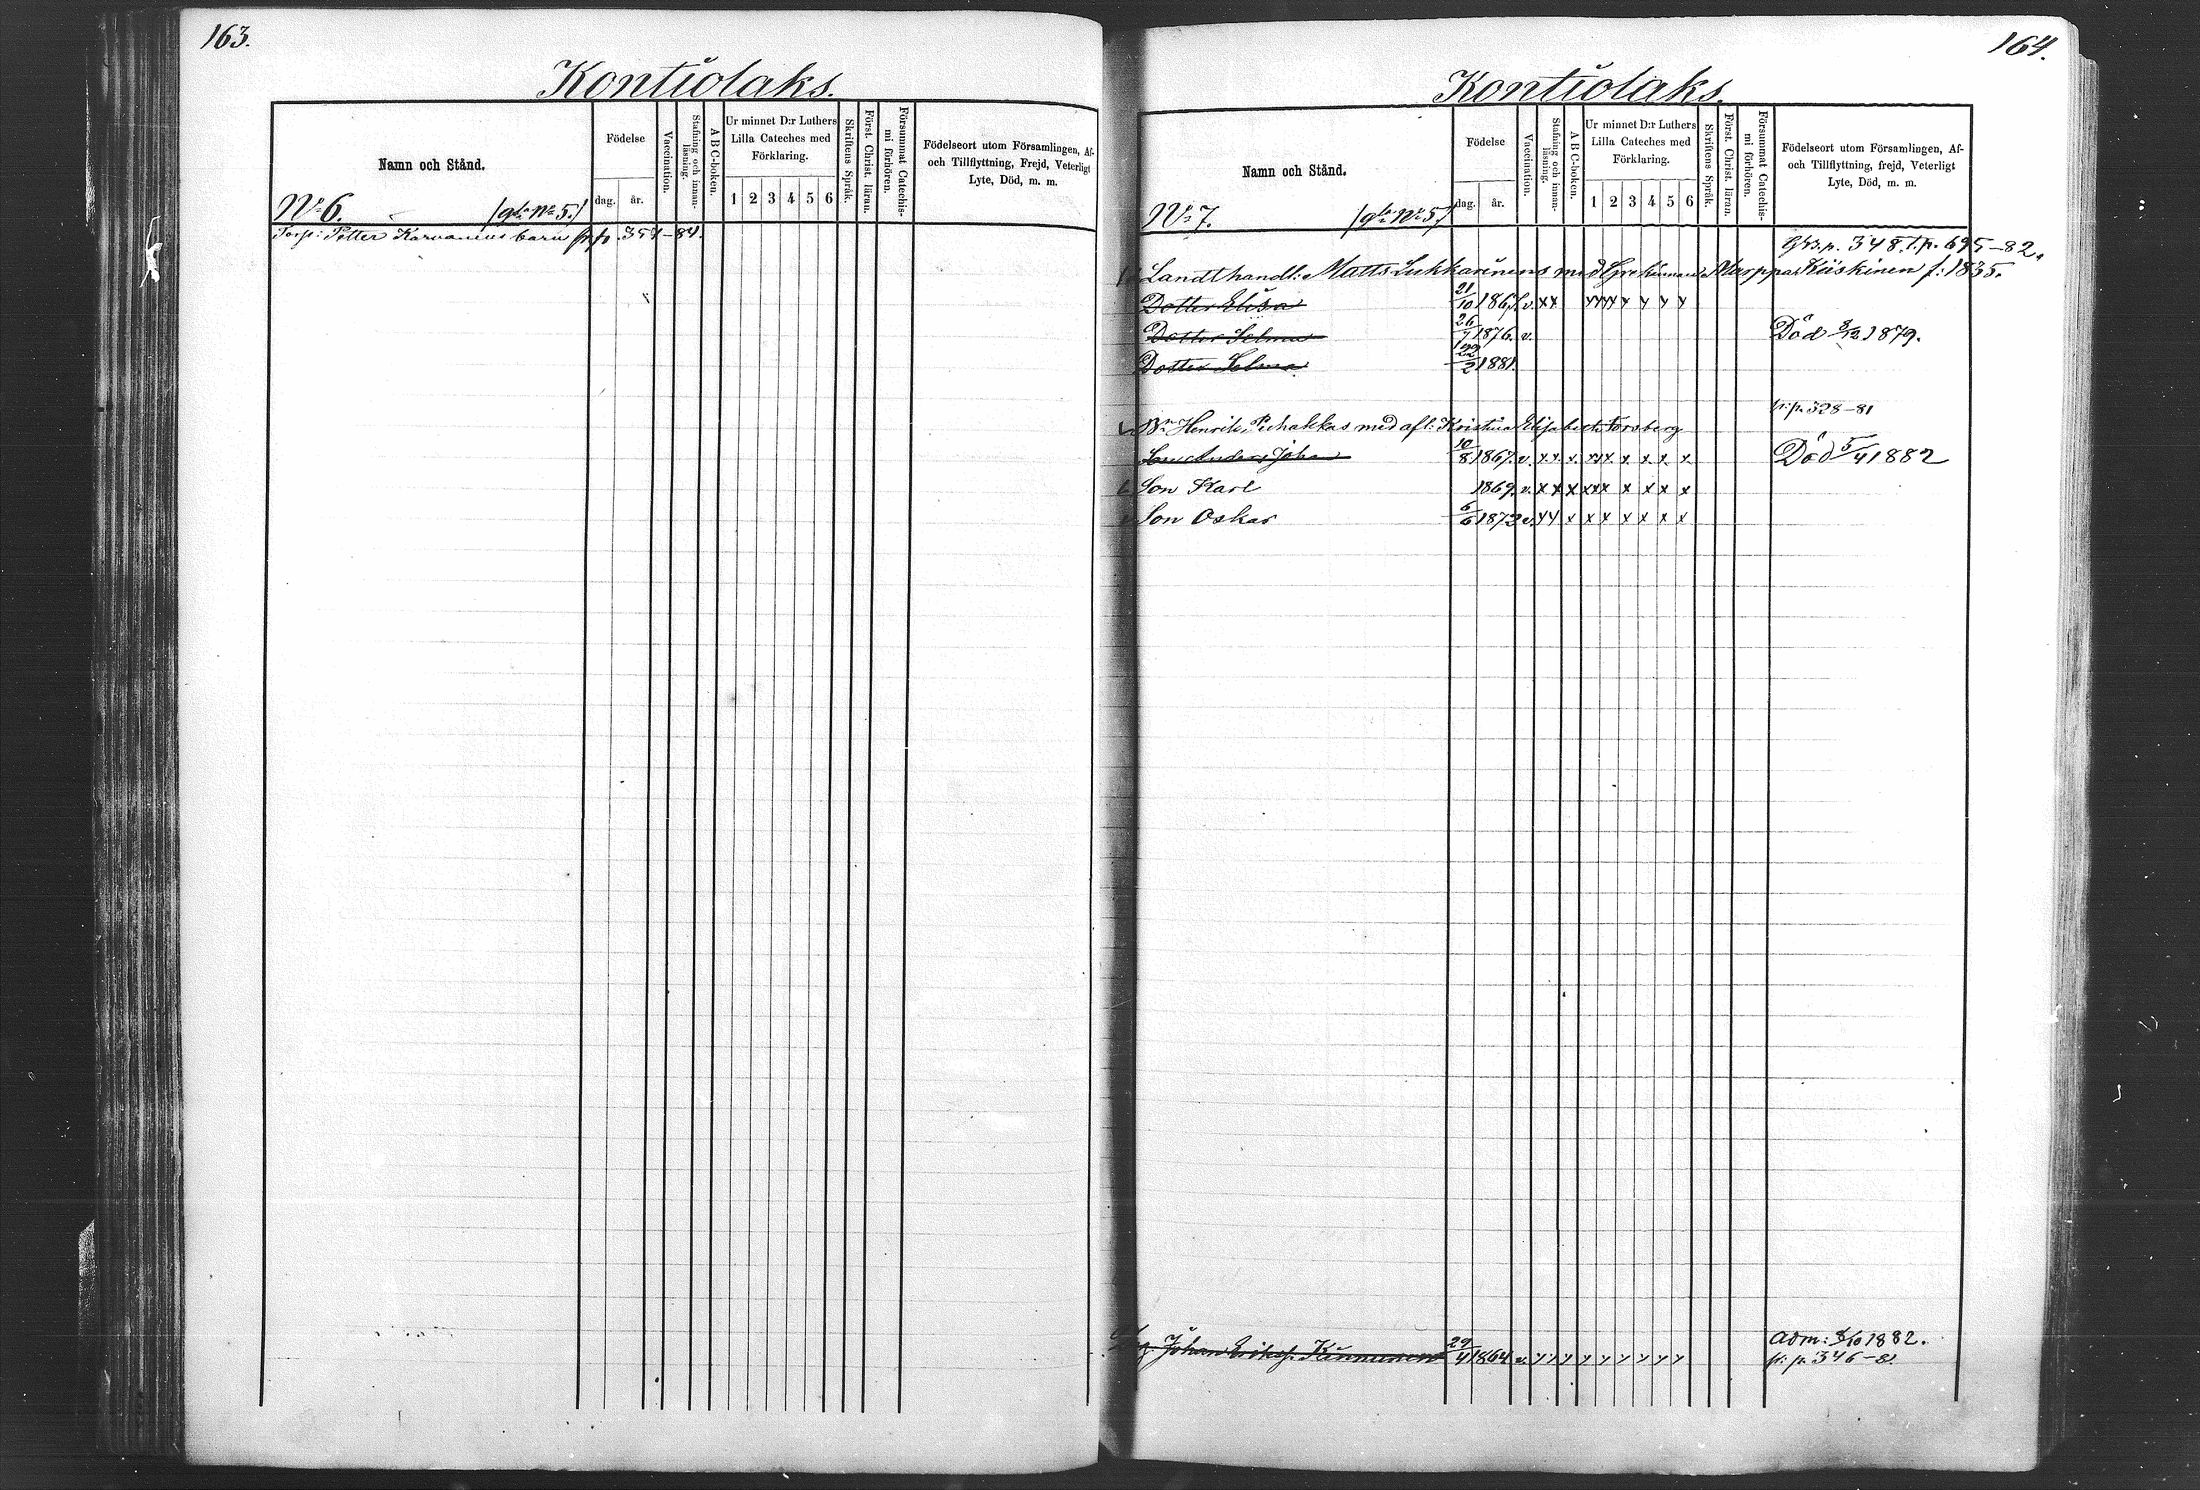 163.
Kontiolaks.
Namn och Stånd.
Födelse
dag.
år.
Vaccination.
Stafning och innanläsning.
A B C-boken.
Ur minnet D:r Luthers
Lilla Cateches med
Förklaring.
1 2 3 4 5 6
Skriftens Språk.
Först. Christ. läran.
Försummat Catechismi förhören.
Födelseort utom Församlingen, Af-
och Tillflyttning, Frejd, Veterligt
Lyte, Död, m. m.
No 6. No 5.
Torp: Petter Karvanens barn fr. p. 354-84.
164.
Kontiolaks.
Namn och Stånd.
Födelse
dag.
år.
Vaccination.
Stafning och innanläsning.
A B C-boken.
Ur minnet D:r Luthers
Lilla Cateches med
Förklaring.
1 2 3 4 5 6
Skriftens Språk.
Först. Christ. läran.
Försummat Catechismi förhören.
Födelseort utom Församlingen, Af-
och Tillflyttning, frejd, Veterligt
Lyte, Död, m. m.
No 7. No 5
p. 348. T. p. 695-82.
Landthandl: Matts Lukkarinens med Kiiskinen f: 1835.
Dotter Elisa 21/10 1867. v. x x x x x x x x x x
Dotter Selma 26/7 1876. v. Död 8/12 1879.
Dotter Selma 22/2 1881.
fr: p. 328-81
Henrik Puhakkas med afl: Kristina Elisabeth Forsberg
Son Anders Johan 10/8 1867. v. x x x. x x x. x. x. x. x. Död 5/4 1882
Son Karl 1869. v. x x x x x x x x x x
Son Oskar 6/6 1873 v. x x x x x x x x x
Johan Erikss. Kinnunen 29/4 1864 v. x x x x x x x x x
Adm: 8/10 1882.
fr: p. 346-81.